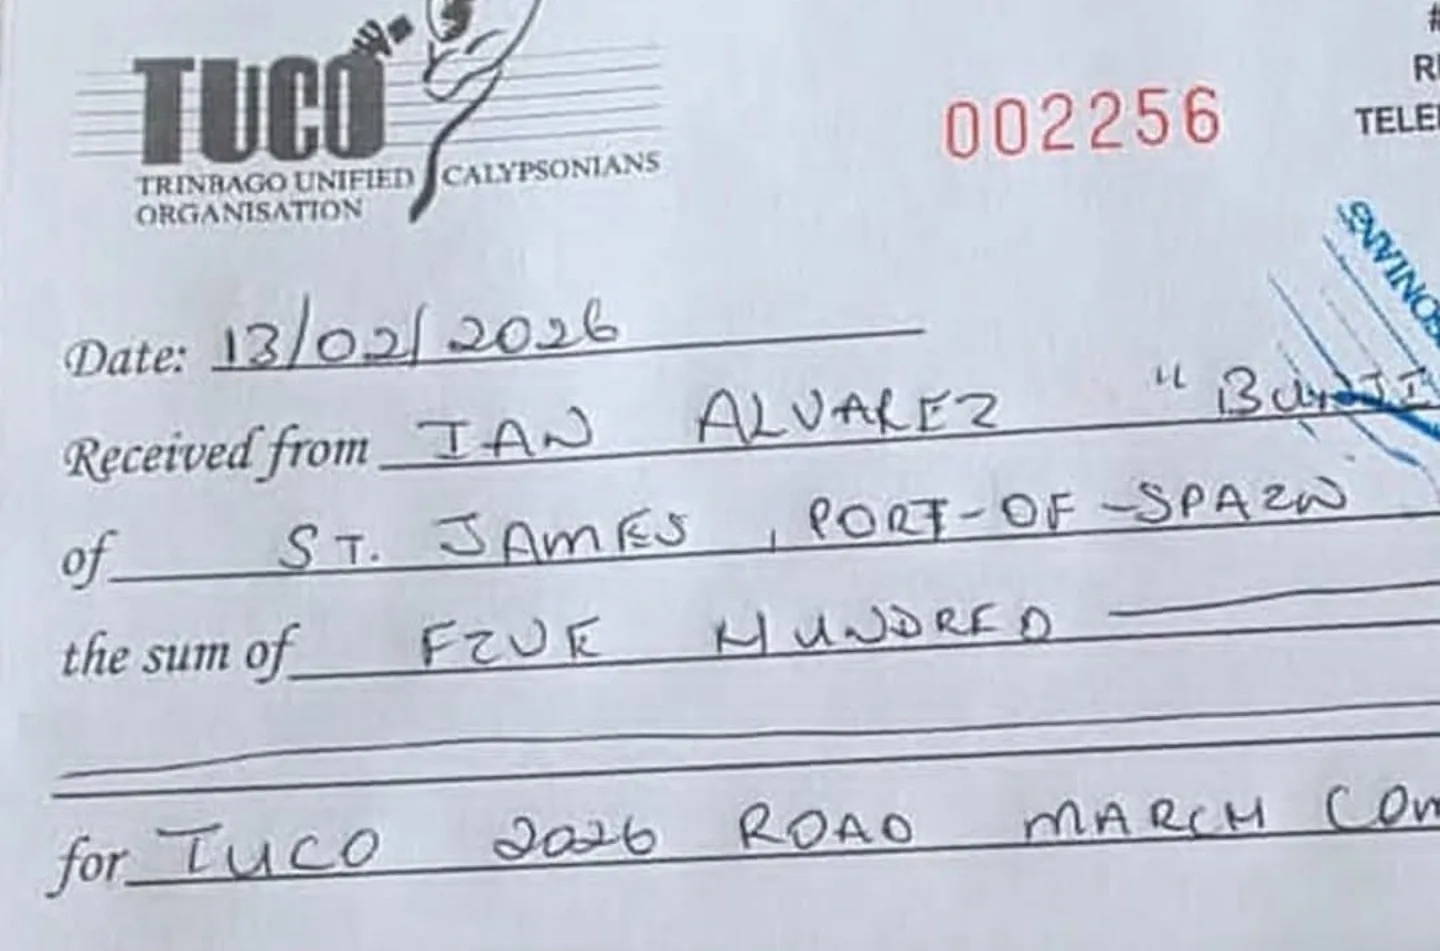 TUCO
TRINBAGO UNIFIED CALYPSONIANS
ORGANISATION
002256
Date: 13/02/2026
Received from IAN ALVAREZ "BUNJI
of ST. JAMES, PORT-OF-SPAIN
the sum of FIVE HUNDRED
for TUCO 2026 ROAD MARCH COM